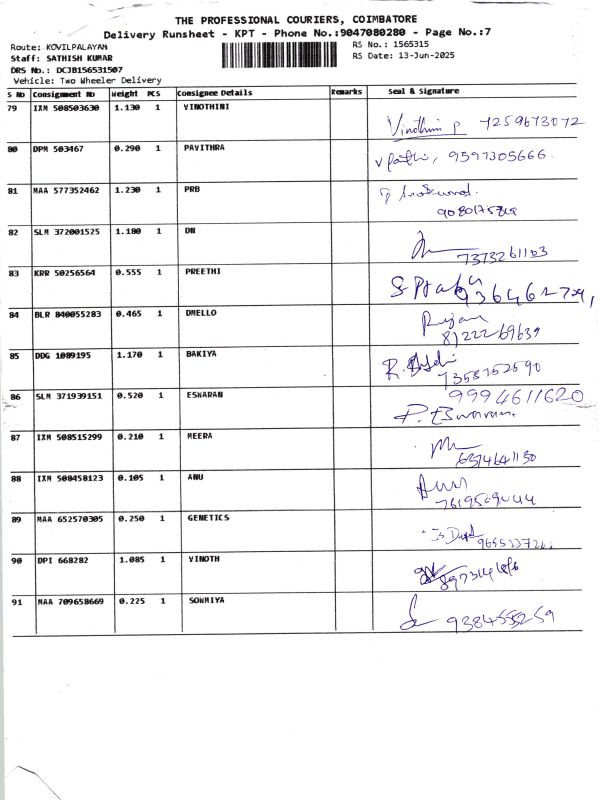 THE PROFESSIONAL COURIERS, COIMBATORE
Delivery Runsheet - KPT - Phone No.:9047080280 - Page No.:7
Route: KOVILPALAYAM RS No.: 1565315
Staff: SATHISH KUMAR RS Date: 13-Jun-2025
DRS No.: DCJB156531507
Vehicle: Two Wheeler Delivery
S No Consignment No Weight PCS Consignee Details Remarks Seal & Signature
79 IXM 508503630 1.130 1 VINOTHINI
Vinothini P 7259673072
80 DPM 503467 0.290 1 PAVITHRA
9597305666
81 MAA 577352462 1.230 1 PRB
82 SLM 372001525 1.180 1 DN
7373261103
83 KRR 50256564 0.555 1 PREETHI
84 BLR 840055283 0.465 1 DMELLO
8122269639
85 DDG 1089195 1.170 1 BAKIYA
7358752590
86 SLM 371939151 0.520 1 ESWARAN 9994611620
P. Eswaran.
87 IXM 508515299 0.210 1 MEERA
6374641130
88 IXM 508458123 0.105 1 ANU
89 MAA 652570305 0.250 1 GENETICS
90 DPI 668282 1.085 1 VINOTH
91 MAA 709658669 0.225 1 SOWMIYA
9384555259